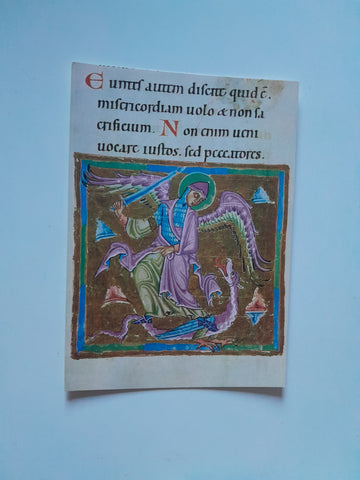 Euntes autem discite quid ē.
misericordiam uolo & non sa
crificium. Non enim ueni
uocare iustos. sed peccatores.